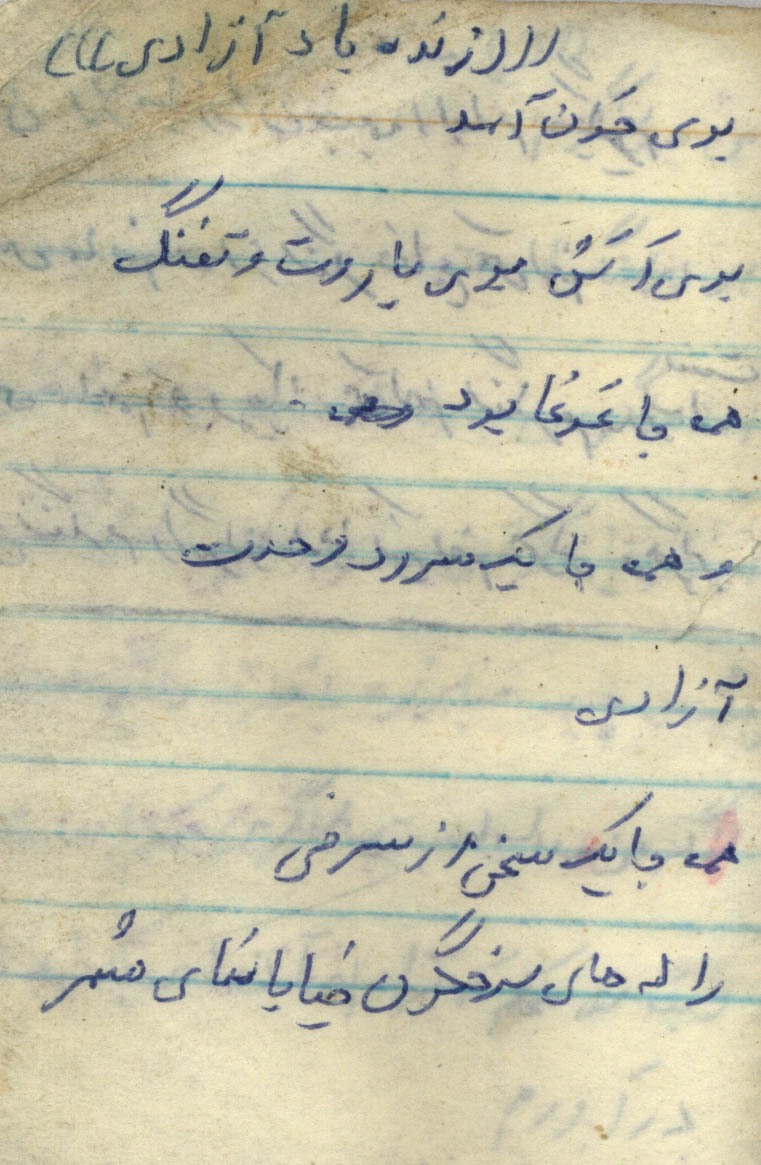 (((زنده باد آزادی)))
بوی خون آید
بوی آتش بوی باروت و تفنگ
همه جا غوغا بود
و همه جا یک سرود وحدت
آزادی
همه جا یک سخن از سرخی
لاله های سرخگون خیابانهای شهر